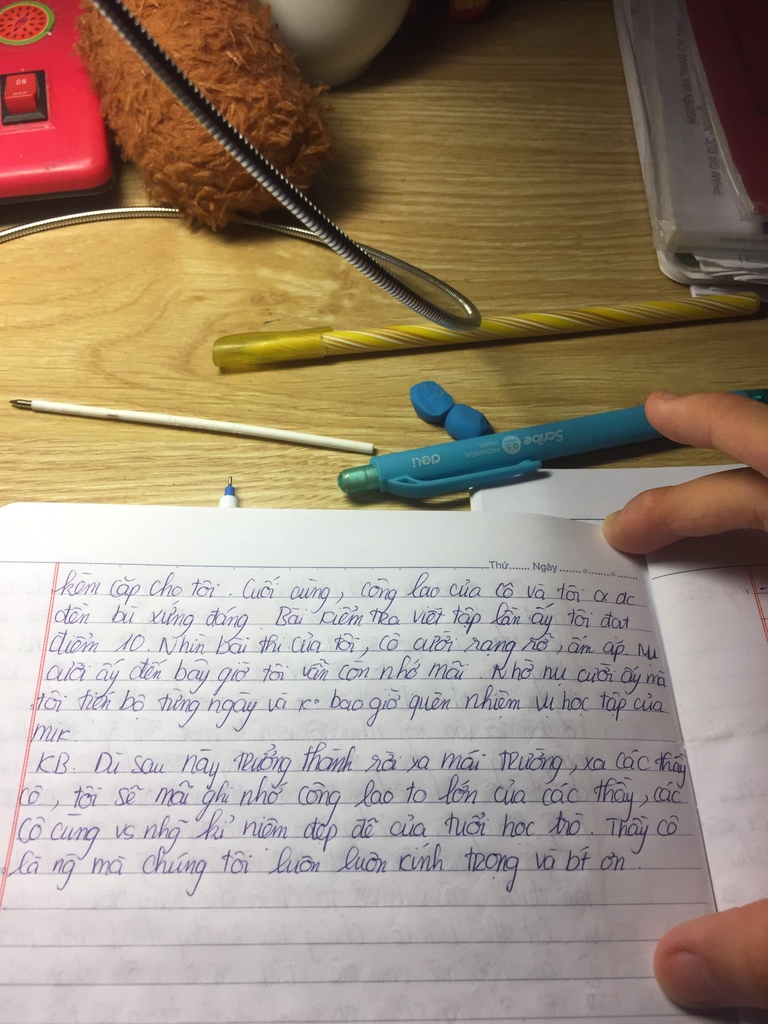 ON
NGUYỄN VĂN TRANG
PHẠM GIA ĐỨC
Scribe 0.5
MECHANICAL
PENCIL
deli
Thứ....... Ngày.......
kèm cặp cho tôi. Cuối cùng, công lao của cô và tôi cx dc
đền bù xứng đáng. Bài kiểm tra viết tập lần ấy tôi đạt
điểm 10. Nhìn bài thi của tôi, cô cười rạng rỡ, ấm áp. Nụ
cười ấy đến bây giờ tôi vẫn còn nhớ mãi. Nhờ nụ cười ấy mà
tôi tiến bộ từng ngày và k° bao giờ quên nhiệm vụ học tập của
mik.
KB. Dù sau này trưởng thành rời xa mái trường, xa các thầy
cô, tôi sẽ mãi ghi nhớ công lao to lớn của các thầy, các
cô cùng vs nhg kỉ niệm đẹp đẽ của tuổi học trò. Thầy cô
là ng mà chúng tôi luôn luôn kính trọng và bt ơn.